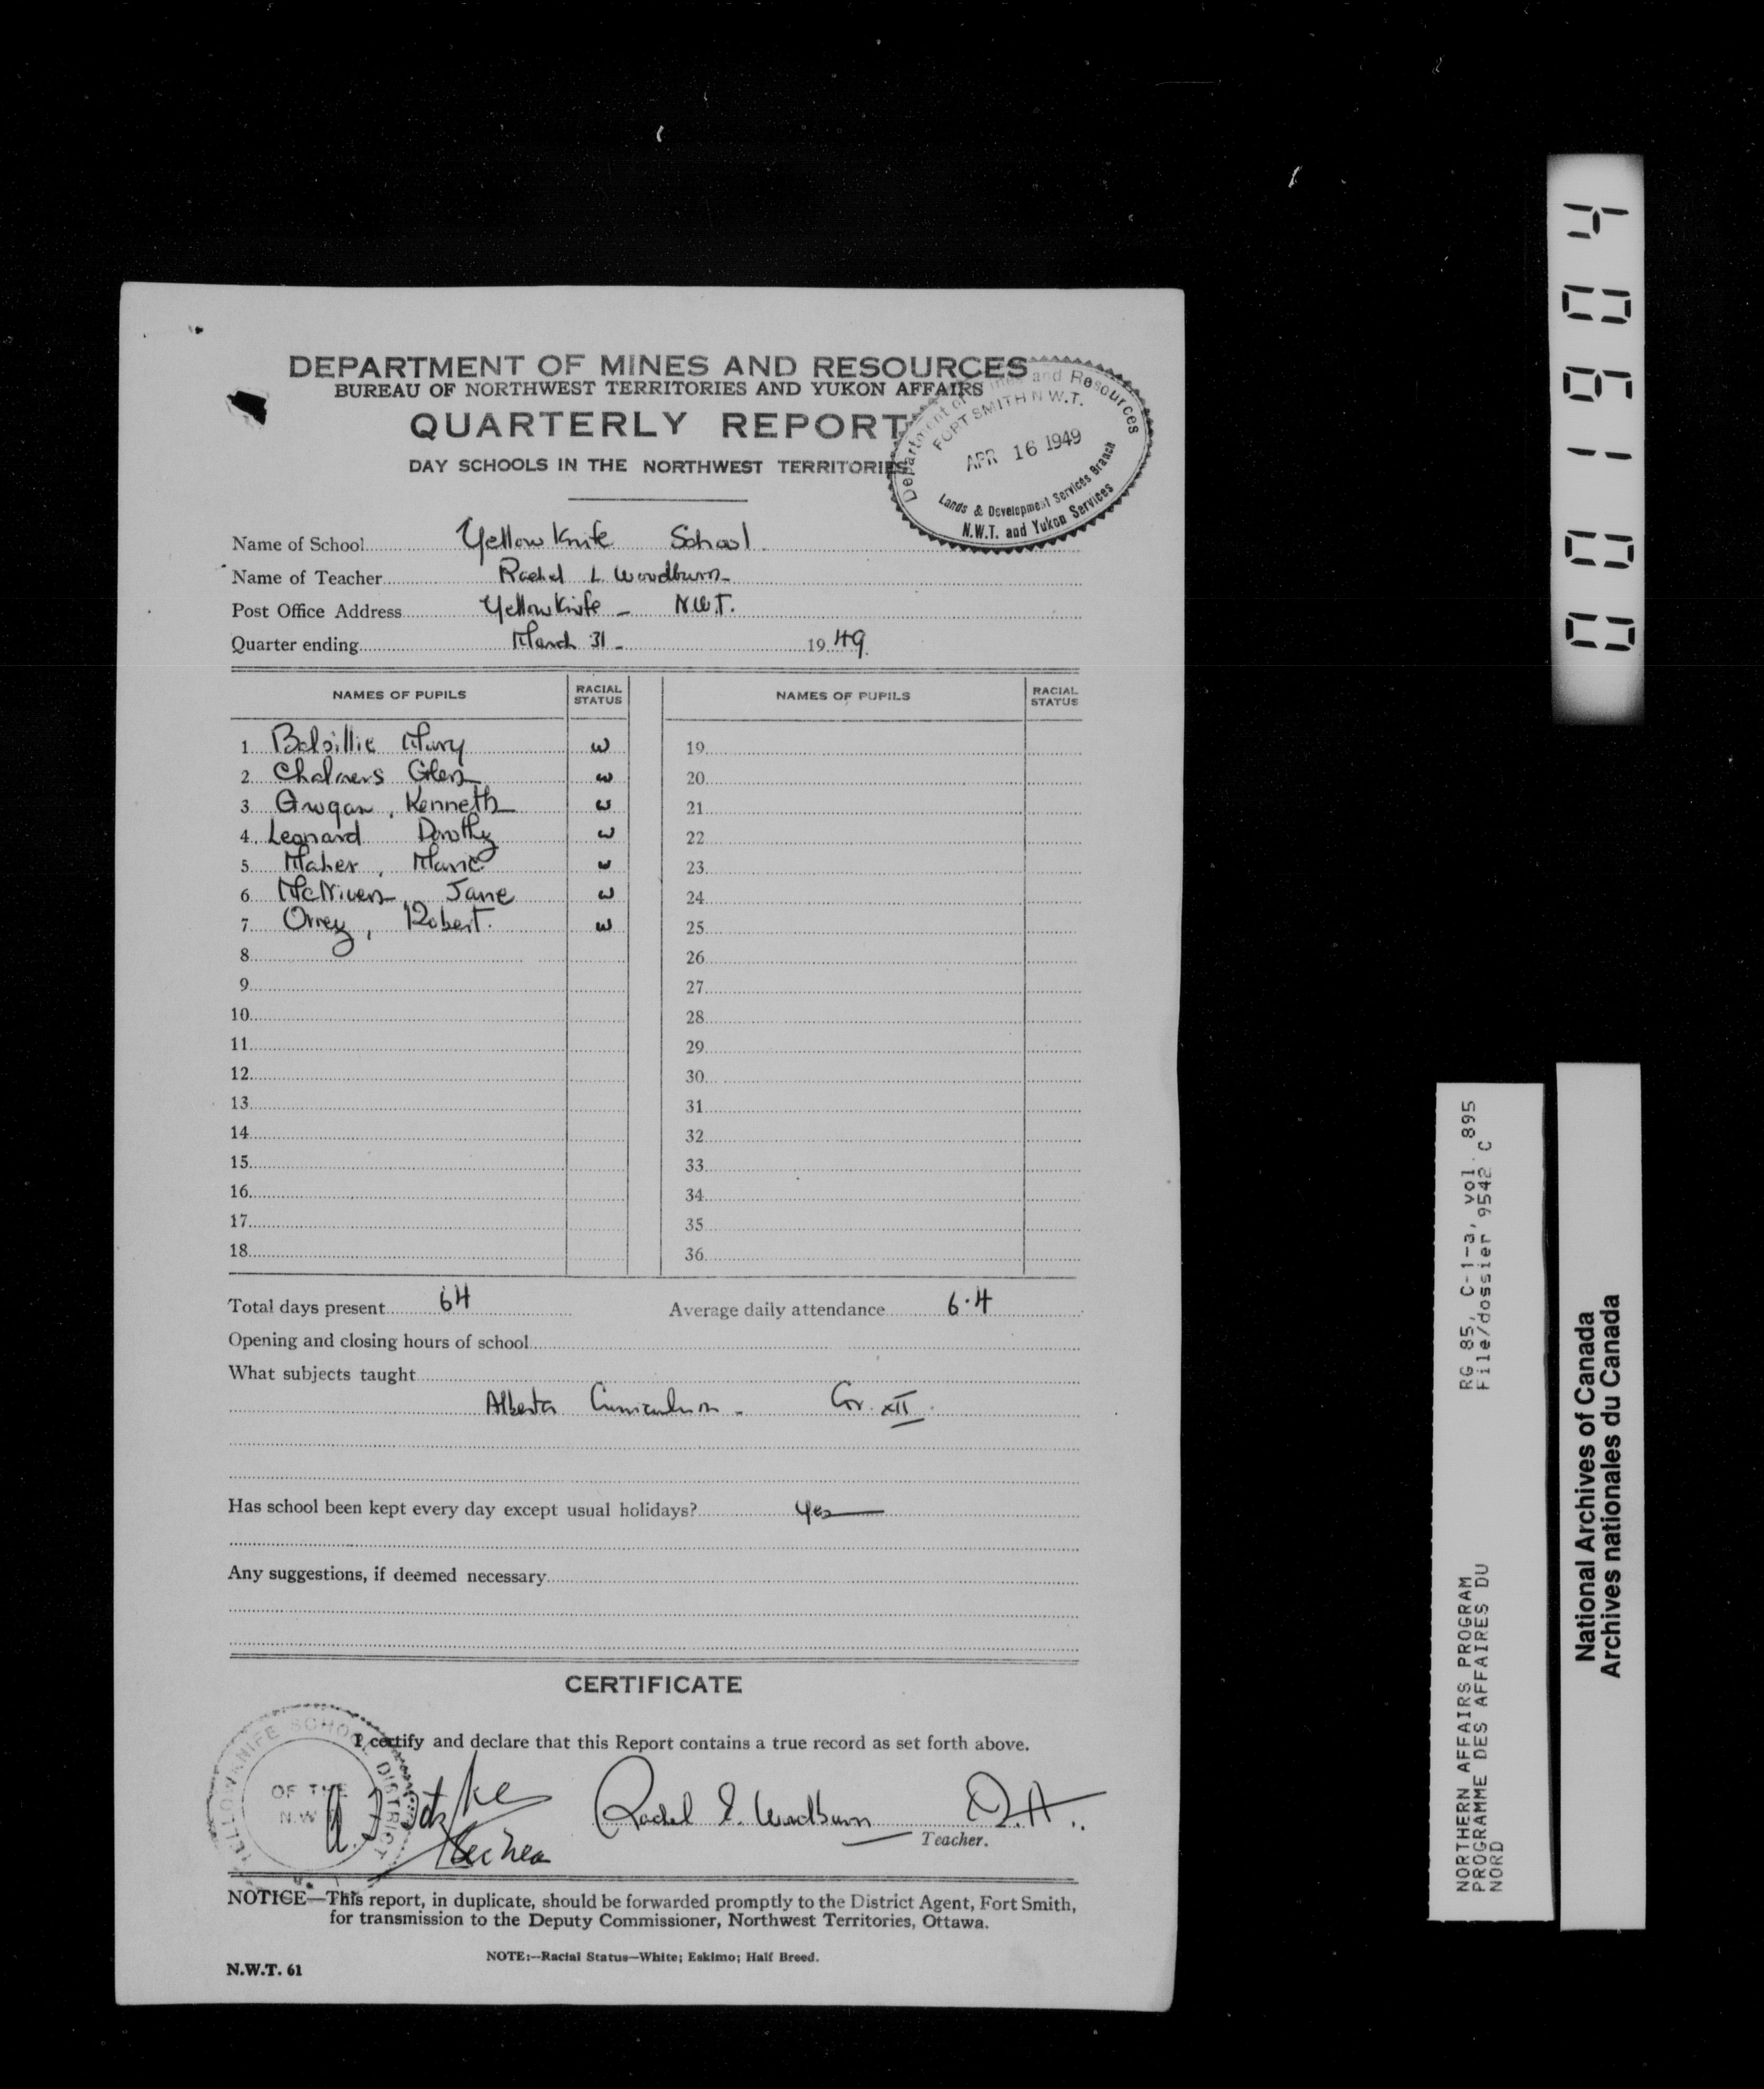 DEPARTMENT OF MINES AND RESOURCES
BUREAU OF NORTHWEST TERRITORIES AND YUKON AFFAIRS
QUARTERLY REPORT
DAY SCHOOLS IN THE NORTHWEST TERRITORIES
Department of Mines and Resources
FORT SMITH N.W.T.
APR 16 1949
Lands & Development Services Branch
N.W.T. and Yukon Services
Name of School Yellowknife School
Name of Teacher Rachel L. Woodburn
Post Office Address Yellowknife - N.W.T.
Quarter ending March 31 - 1949
NAMES OF PUPILS RACIAL STATUS NAMES OF PUPILS RACIAL STATUS
1 Balsillie Mary W 19
2 Chalmers Glen W 20
3 Grogan, Kenneth W 21
4 Leonard Dorothy W 22
5 Maher, Marie W 23
6 McNiven, Jane W 24
7 Orrey, Robert. W 25
8 26
9 27
10 28
11 29
12 30
13 31
14 32
15 33
16 34
17 35
18 36
Total days present 64 Average daily attendance 6.4
Opening and closing hours of school
What subjects taught
Alberta Curriculum - Gr. XII.
Has school been kept every day except usual holidays? Yes
Any suggestions, if deemed necessary
CERTIFICATE
YELLOWKNIFE SCHOOL DISTRICT
OF THE
N.W.
I certify and declare that this Report contains a true record as set forth above.
Rachel L. Woodburn
Teacher.
NOTICE—This report, in duplicate, should be forwarded promptly to the District Agent, Fort Smith,
for transmission to the Deputy Commissioner, Northwest Territories, Ottawa.
NOTE:—Racial Status—White; Eskimo; Half Breed.
N.W.T. 61
001904
RG 85, C-1-a, vol. 895
File/dossier 9542 C
NORTHERN AFFAIRS PROGRAM
PROGRAMME DES AFFAIRES DU
NORD
National Archives of Canada
Archives nationales du Canada